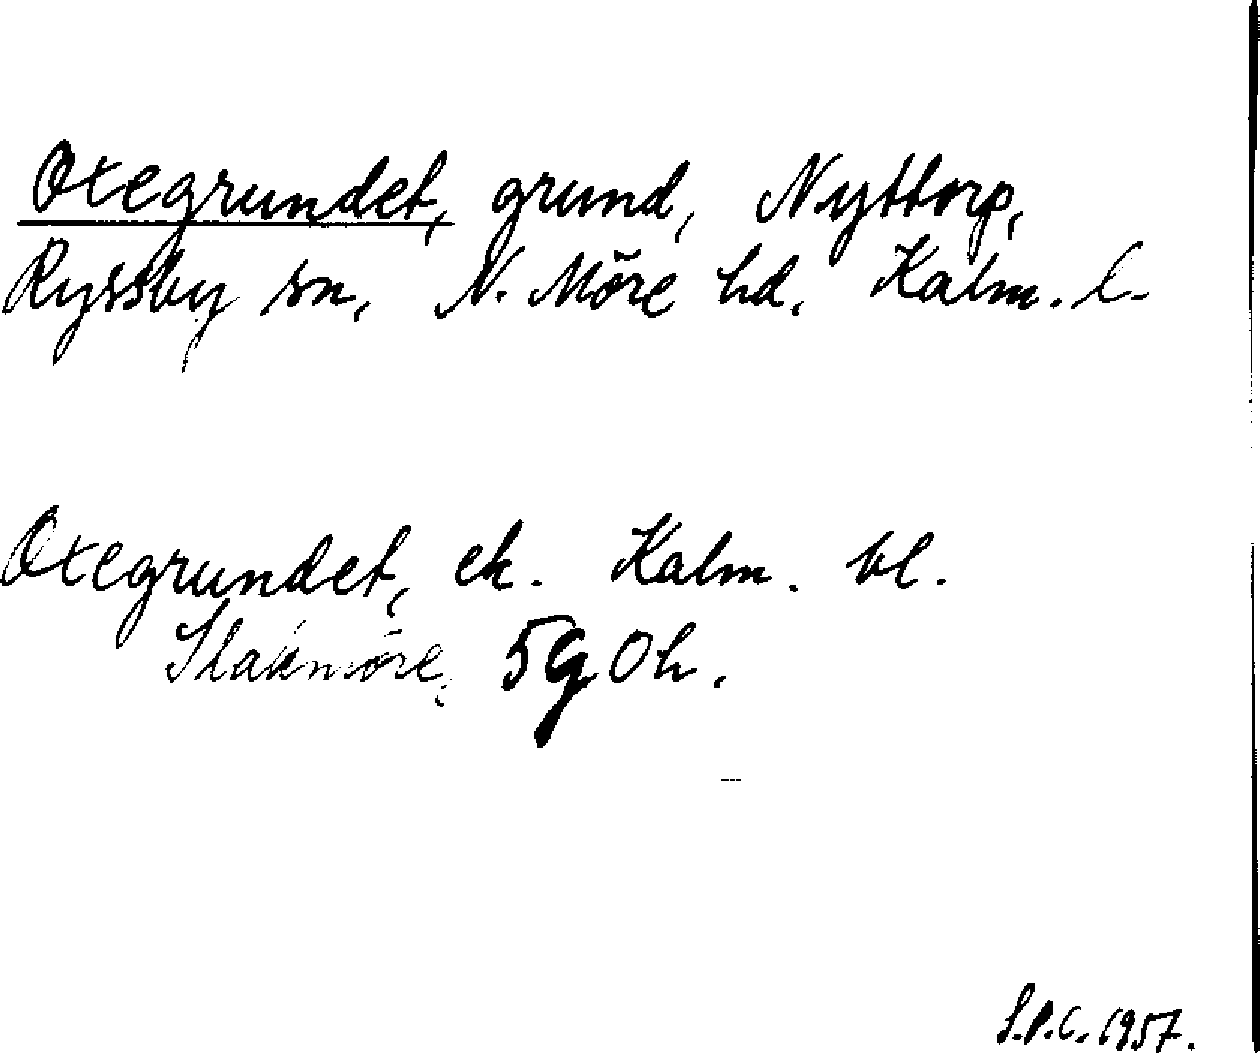 Oxegrundet, grund, Nyttorp,
Ryssby sn, N. Möre hd. Kalm. l.
Oxegrundet, ek. Kalm. bl.
Slakmöre, 5g Oh.
S.P.C. 1957.